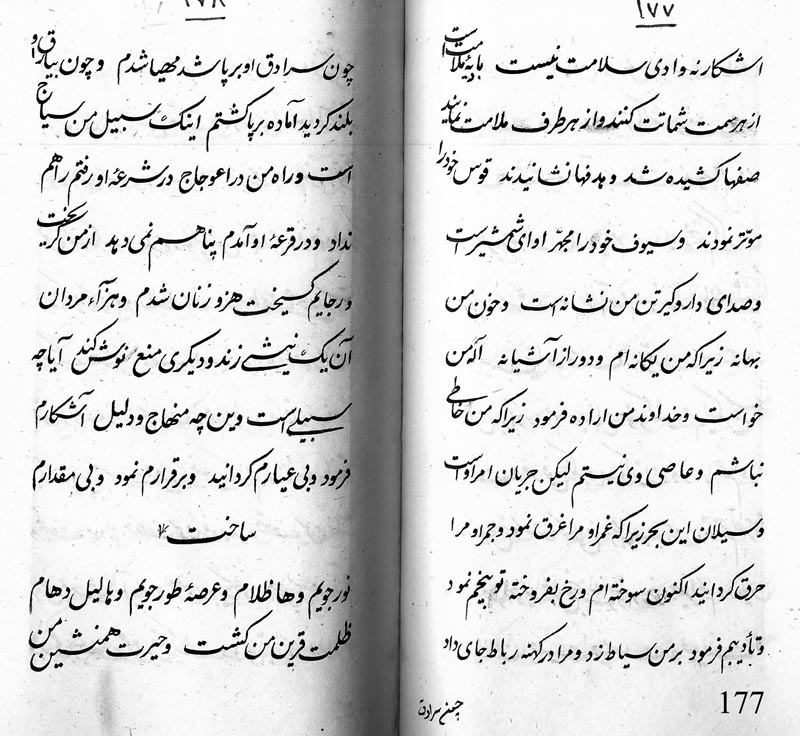 ۱۷۷
اشکار نه وادی سلامت نیست بادیهٔ ملامت است
از هر سمت شماتت کنند و از هر طرف ملامت نمایند
صفها کشیده شد و هدفها نشانیدند قوس خود را
موتر نمودند و سیوف خود را مجهّر اوای شمشیر است
و صدای دار و گیر تن من نشانه است و خون من
بهانه زیرا که من یگانه ام و دور از آشیانه اله من
خواست و خداوند من اراده فرمود زیرا که من خاطی
نباشم و عاصی وی نیستم لیکن جریان امر اوست
و سیلان این بحر زیرا که غمر او مرا غرق نمود و جمر او مرا
حرق گردانید اکنون سوخته ام و رخ بفروخته توبیخم نمود
و تأدیبم فرمود بر من سیاط زد و مرا در کهنه رباط جای داد
چون سرادق
177
۱۷۸
چون سرادق او بر پا شد مهیا شدم و چون بیارق او
بلند گردید آماده بر پا گشتم اینک سبیل من سیاج
است و راه من در اعوجاج در شرعهٔ او رفتم راهم
نداد و در قرعهٔ او آمدم پناهم نمی دهد از من گریخت
و رجایم گسیخت هزو زنان شدم و هزآء مردان
آن یک نیشی زند و دیگری منع نوش کند آیا چه
سبیلی است و این چه منهاج و دلیل آشکارم
فرمود و بی عیارم گردانید و برقرارم نمود و بی مقدارم
ساخت
نور جویم و ها ظلام و عرصهٔ طور جویم و ها لیل دهام
ظلمت قرین من گشت و حیرت همنشین من